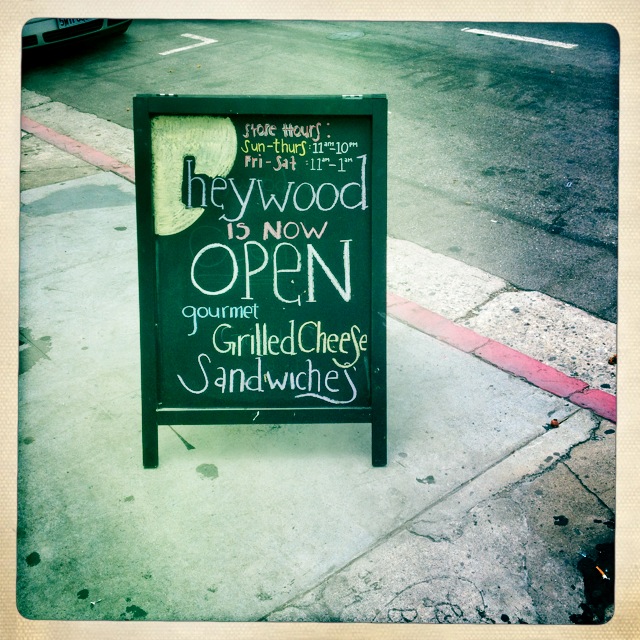 Store Hours:
Sun-thurs: 11am-10pm
Fri-Sat: 11am-1am
heywood
is NOW
OPEN
gourmet
Grilled Cheese
Sandwiches